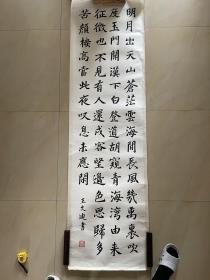 明月出天山蒼茫雲海間長風幾萬裏吹
度玉門關漢下白登道胡窺青海灣由来
征戰地不見有人還戍客望邊色思歸多
苦顏樓高當此夜嘆息未應閑